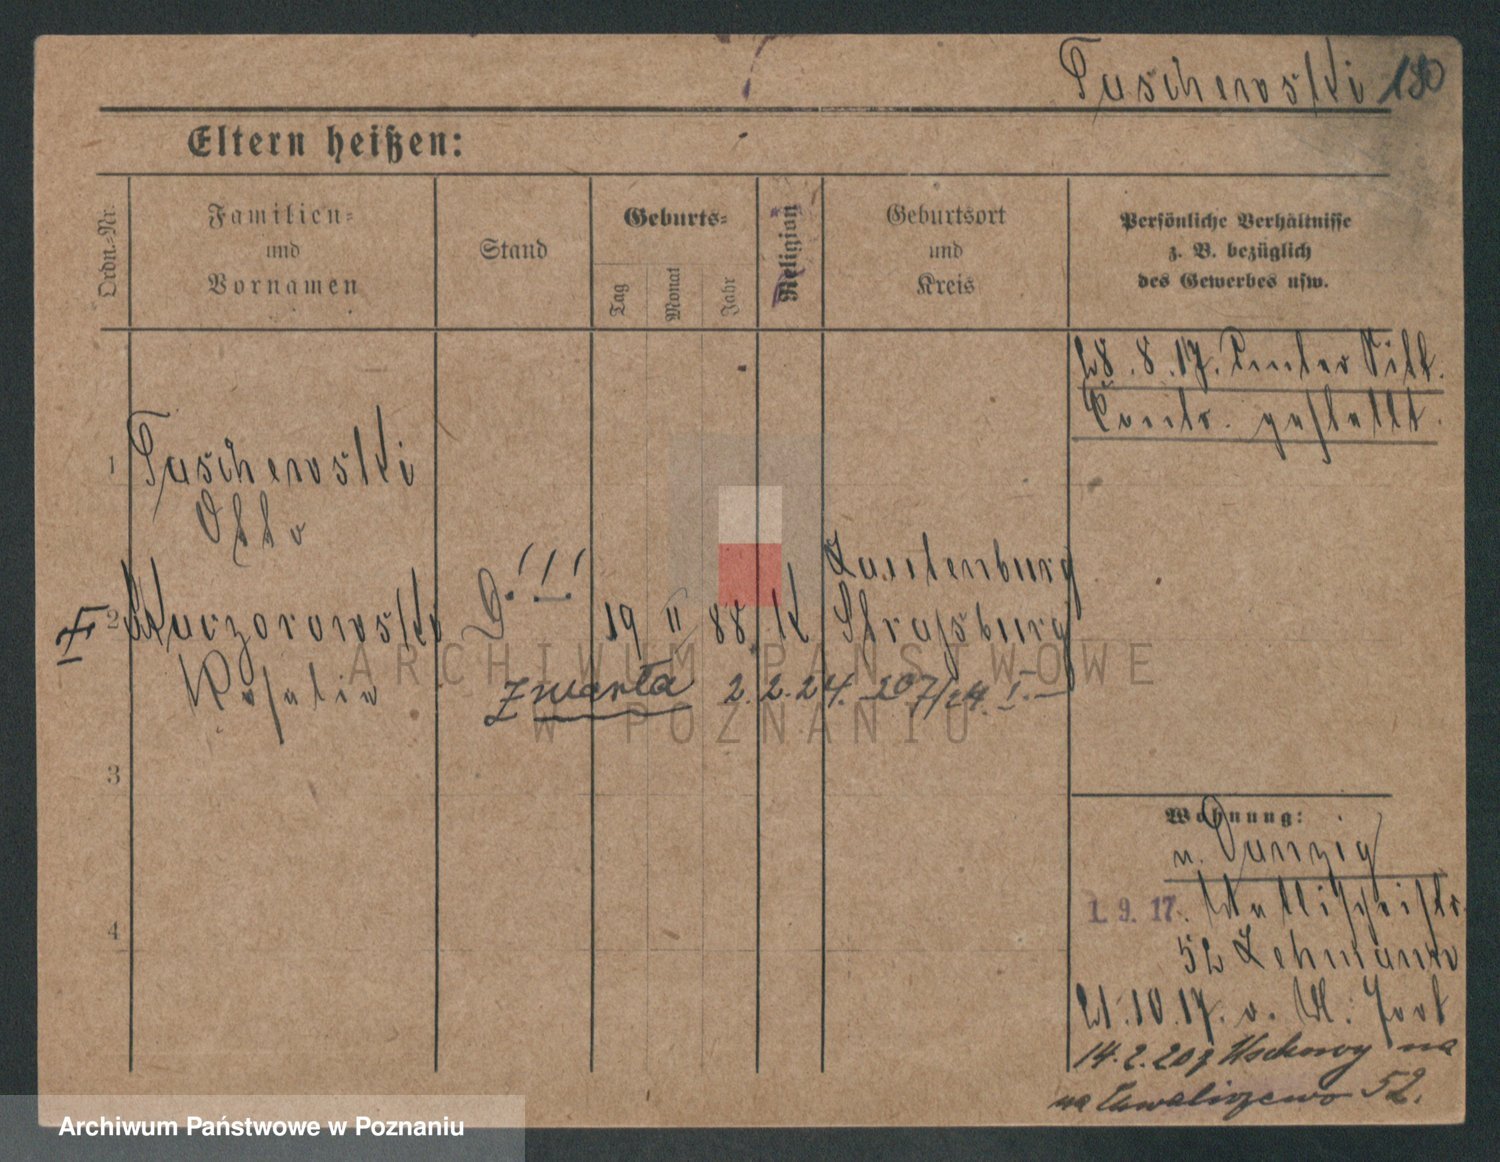 Paschewski 180
Eltern heißen:
Ordn.-Nr.
Familien-
und
Vornamen
Stand
Geburts-
Tag
Monat
Jahr
Religion
Geburtsort
und
Kreis
Persönliche Verhältnisse
z. B. bezüglich
des Gewerbes usw.
28.8.17. Unter Mil.
Contr. gestellt.
1 Paschewski
Otto
2 Kaczorowski
Rosalie
19 II 88 K Lautenburg
Strasburg
zmarła 2.2.24. 207/24. I.
3
4
Wohnung:
n. Danzig
1. 9. 17. Wallischeistr.
52 Lehmann
21.10.17. v. W. fort
14.2.20 z Wschowy na
na Chwaliszewo 52.
ARCHIWUM PAŃSTWOWE
W POZNANIU
Archiwum Państwowe w Poznaniu